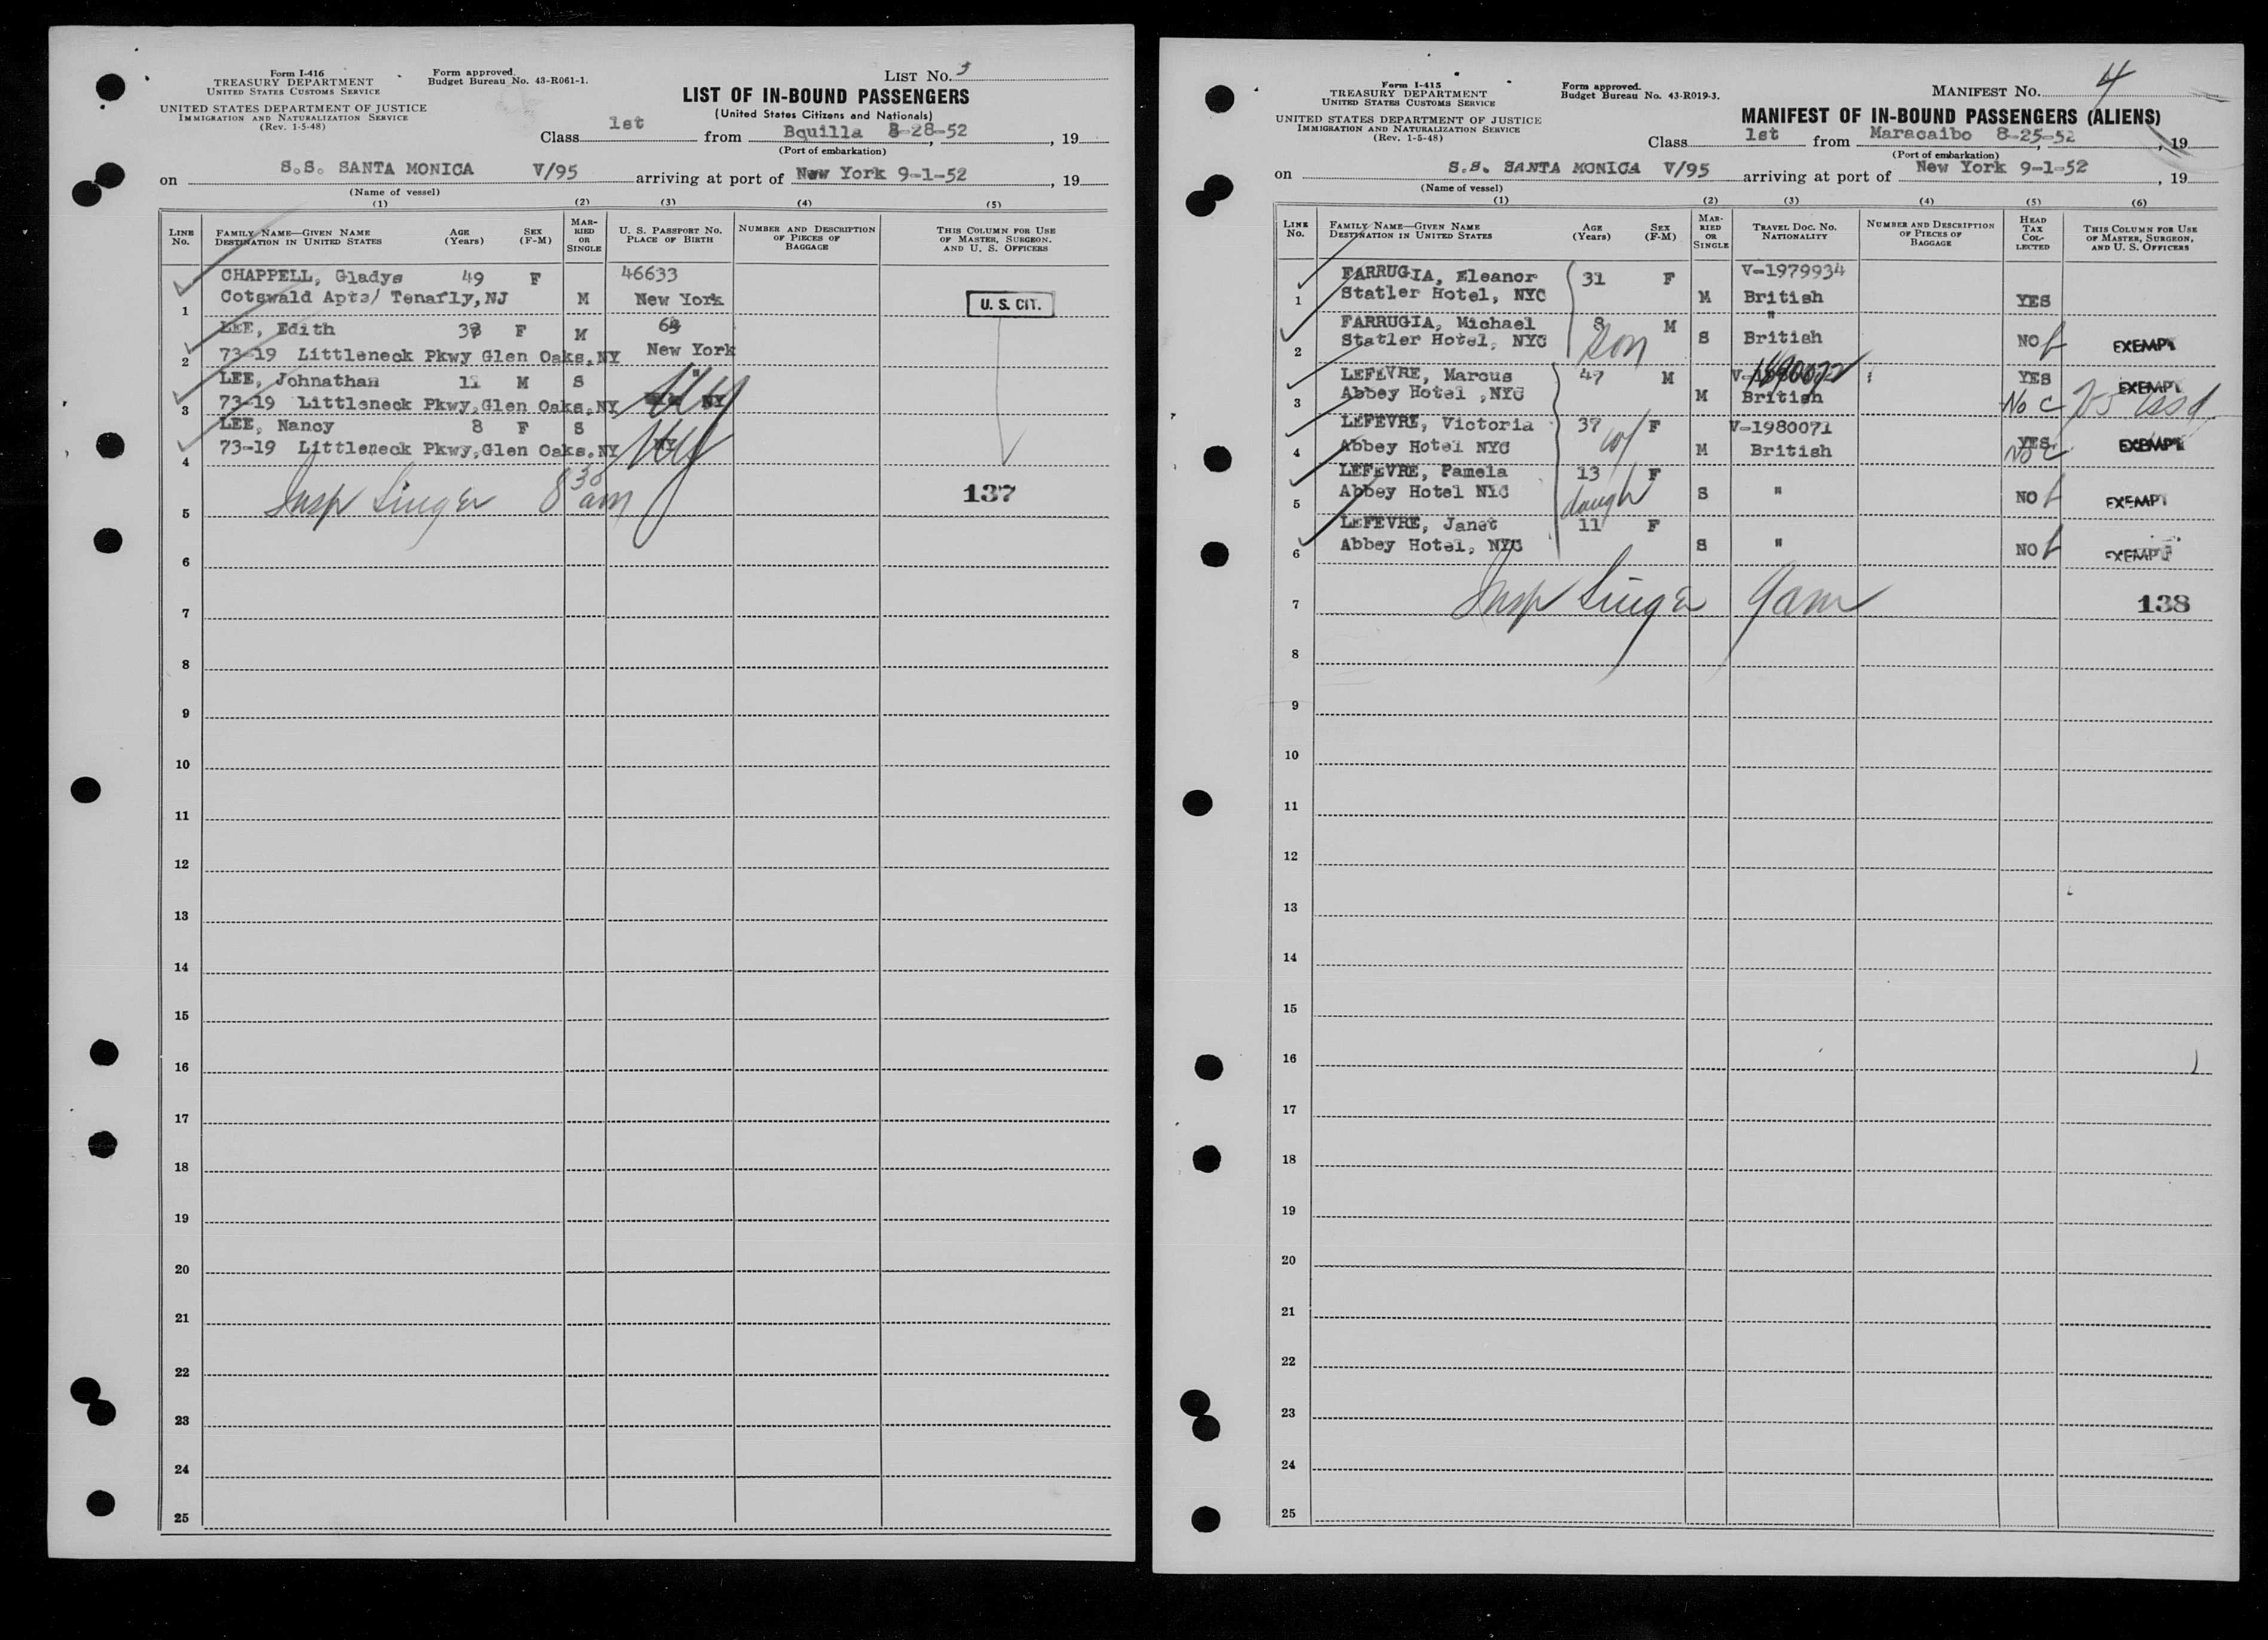 Form I-416
TREASURY DEPARTMENT
UNITED STATES CUSTOMS SERVICE
UNITED STATES DEPARTMENT OF JUSTICE
IMMIGRATION AND NATURALIZATION SERVICE
(Rev. 1-5-48)
Form approved.
Budget Bureau No. 43-R061-1.
LIST NO.
LIST OF IN-BOUND PASSENGERS
(United States Citizens and Nationals)
Class 1st from Bquilla 8-28-52, 19
(Port of embarkation)
on S.S. SANTA MONICA V/95 arriving at port of New York 9-1-52, 19
(Name of vessel)
(1) (2) (3) (4) (5)
LINE NO. FAMILY NAME—GIVEN NAME DESTINATION IN UNITED STATES AGE (Years) SEX (F-M) MARRIED OR SINGLE U. S. PASSPORT NO. PLACE OF BIRTH NUMBER AND DESCRIPTION OF PIECES OF BAGGAGE THIS COLUMN FOR USE OF MASTER, SURGEON, AND U. S. OFFICERS
CHAPPELL, Gladys 49 F 46633
1 Cotswald Apts/ Tenafly,NJ M New York U. S. CIT.
LEE, Edith F M
2 73-19 Littleneck Pkwy Glen Oaks,NY New York
LEE, Johnathan 11 M S "
3 73-19 Littleneck Pkwy,Glen Oaks,NY NY
LEE, Nancy 8 F S
4 73-19 Littleneck Pkwy,Glen Oaks,NY NY
5 Insp Singer 8 30 am 137
6
7
8
9
10
11
12
13
14
15
16
17
18
19
20
21
22
23
24
25
Form I-415
TREASURY DEPARTMENT
UNITED STATES CUSTOMS SERVICE
UNITED STATES DEPARTMENT OF JUSTICE
IMMIGRATION AND NATURALIZATION SERVICE
(Rev. 1-5-48)
Form approved.
Budget Bureau No. 43-R019-3.
MANIFEST NO. 4
MANIFEST OF IN-BOUND PASSENGERS (ALIENS)
Class 1st from Maracaibo 8-25-52, 19
(Port of embarkation)
on S.S. SANTA MONICA V/95 arriving at port of New York 9-1-52, 19
(Name of vessel)
(1) (2) (3) (4) (5) (6)
LINE NO. FAMILY NAME—GIVEN NAME DESTINATION IN UNITED STATES AGE (Years) SEX (F-M) MARRIED OR SINGLE TRAVEL DOC. NO. NATIONALITY NUMBER AND DESCRIPTION OF PIECES OF BAGGAGE HEAD TAX COLLECTED THIS COLUMN FOR USE OF MASTER, SURGEON, AND U. S. OFFICERS
FARRUGIA, Eleanor 31 F V-1979934
1 Statler Hotel, NYC M British YES
FARRUGIA, Michael 8 M "
2 Statler Hotel, NYC son S British NO EXEMPT
LEFEVRE, Marcus 47 M YES EXEMPT
3 Abbey Hotel ,NYC M British No C
LEFEVRE, Victoria 37 F V-1980071
4 Abbey Hotel NYC w/ M British YES No C EXEMPT
LEFEVRE, Pamela 13 F
5 Abbey Hotel NYC daugh S " NO EXEMPT
LEFEVRE, Janet 11 F
6 Abbey Hotel, NYC S " NO EXEMPT
7 Insp Singer 9am 138
8
9
10
11
12
13
14
15
16
17
18
19
20
21
22
23
24
25